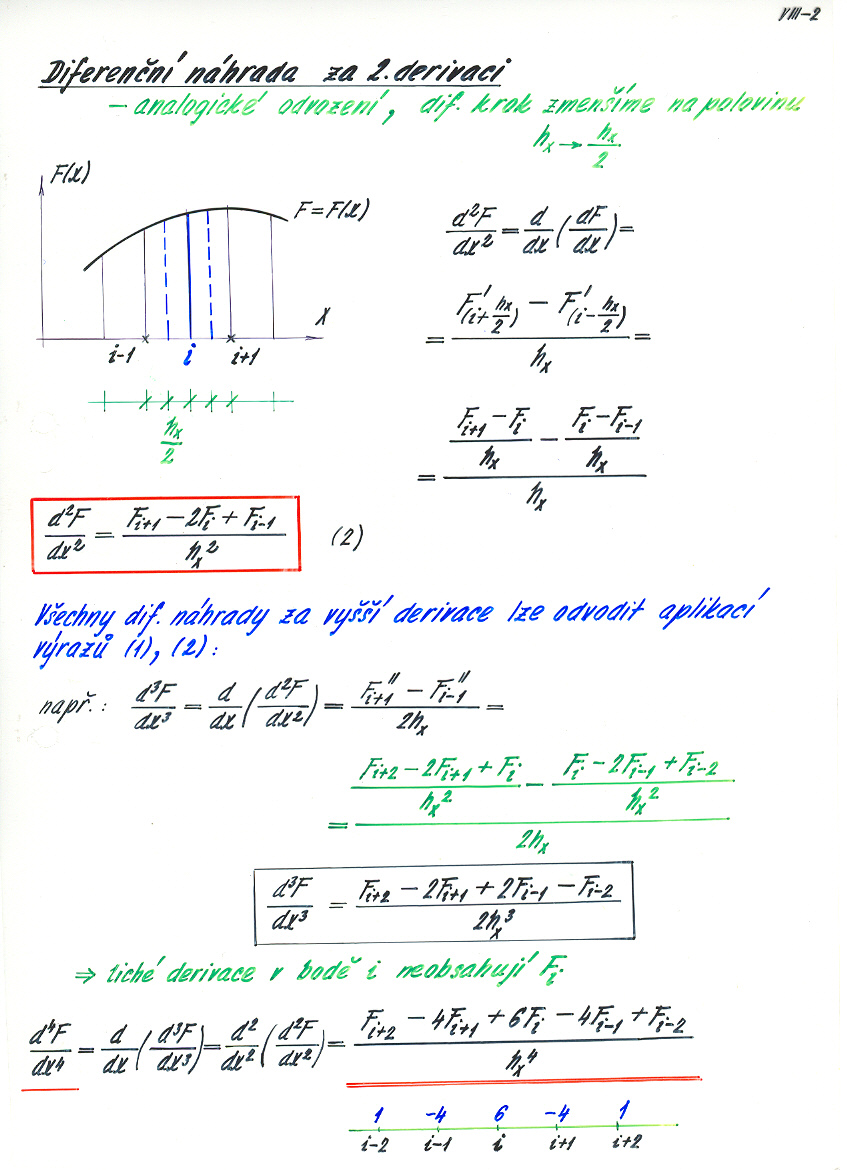 VIII-2
Diferenční náhrada za 2. derivaci
- analogické odvození, dif. krok zmenšíme na polovinu
hx → hx/2
F(x)
F = F(x)
x
i-1 i i+1
hx/2
d²F/dx² = d/dx (dF/dx) =
= (F'(i+hx/2) - F'(i-hx/2)) / hx =
= ((Fi+1 - Fi)/hx - (Fi - Fi-1)/hx) / hx
d²F/dx² = (Fi+1 - 2Fi + Fi-1) / hx² (2)
Všechny dif. náhrady za vyšší derivace lze odvodit aplikací
výrazů (1), (2):
např.: d³F/dx³ = d/dx (d²F/dx²) = (F''i+1 - F''i-1) / 2hx =
= ((Fi+2 - 2Fi+1 + Fi)/hx² - (Fi - 2Fi-1 + Fi-2)/hx²) / 2hx
d³F/dx³ = (Fi+2 - 2Fi+1 + 2Fi-1 - Fi-2) / 2hx³
⇒ liché derivace v bodě i neobsahují Fi
d⁴F/dx⁴ = d/dx (d³F/dx³) = d²/dx² (d²F/dx²) = (Fi+2 - 4Fi+1 + 6Fi - 4Fi-1 + Fi-2) / hx⁴
1 -4 6 -4 1
i-2 i-1 i i+1 i+2